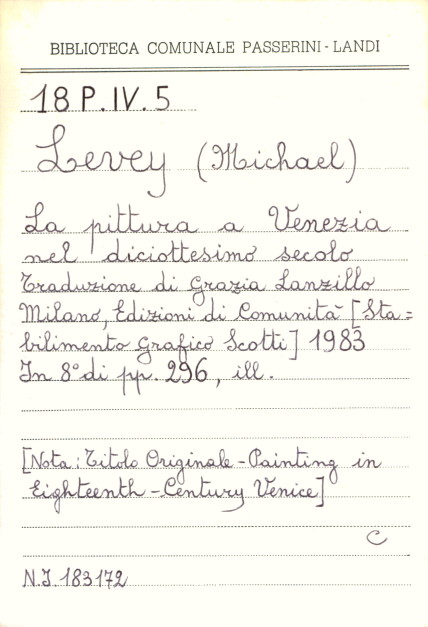 BIBLIOTECA COMUNALE PASSERINI - LANDI
18 P. IV. 5
Levey (Michael)
La pittura a Venezia
nel diciottesimo secolo
Traduzione di Grazia Lanzillo
Milano, Edizioni di Comunità [Sta=
bilimento Grafico Scotti] 1983
In 8° di pp. 296, ill.
[Nota: Titolo Originale - Painting in
Eighteenth - Century Venice]
C
N.I. 183172